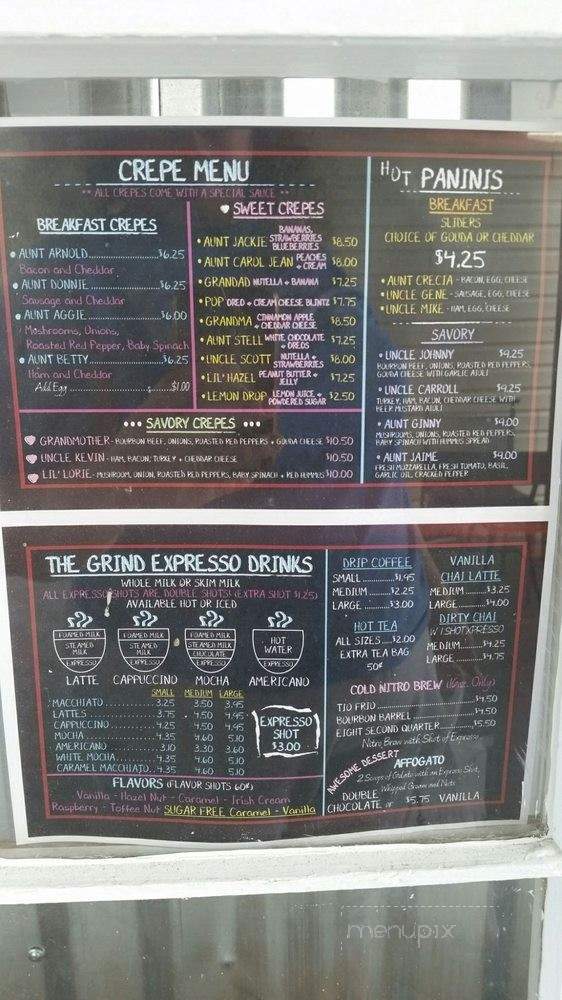 CREPE MENU
** ALL CREPES COME WITH A SPECIAL SAUCE **
BREAKFAST CREPES
• AUNT ARNOLD...................$6.25
Bacon and Cheddar
• AUNT DONNIE...................$6.25
Sausage and Cheddar
• AUNT AGGIE...................$6.00
Mushrooms, Onions,
Roasted Red Pepper, Baby Spinach
• AUNT BETTY...................$6.25
Ham and Cheddar
Add Egg...................$1.00
SWEET CREPES
• AUNT JACKIE BANANAS, STRAWBERRIES BLUEBERRIES $8.50
• AUNT CAROL JEAN PEACHES + CREAM $8.00
• GRANDAD NUTELLA + BANANA $7.25
• POP OREO + CREAM CHEESE BLINTZ $7.75
• GRANDMA CINNAMON APPLE + CHEDDAR CHEESE $8.50
• AUNT STELL WHITE CHOCOLATE + OREOS $7.25
• UNCLE SCOTT NUTELLA + STRAWBERRIES $8.00
• LIL' HAZEL PEANUT BUTTER + JELLY $7.25
• LEMON DROP LEMON JUICE + POWDERED SUGAR $2.50
••• SAVORY CREPES •••
GRANDMOTHER - BOURBON BEEF, ONIONS, ROASTED RED PEPPERS + GOUDA CHEESE $10.50
UNCLE KEVIN - HAM, BACON, TURKEY + CHEDDAR CHEESE $10.50
LIL' LORIE - MUSHROOM, ONION, ROASTED RED PEPPERS, BABY SPINACH + RED HUMMUS $10.00
HOT PANINIS
BREAKFAST
SLIDERS
CHOICE OF GOUDA OR CHEDDAR
$4.25
• AUNT CRECIA - BACON, EGG, CHEESE
• UNCLE GENE - SAUSAGE, EGG, CHEESE
• UNCLE MIKE - HAM, EGG, CHEESE
SAVORY
• UNCLE JOHNNY $9.25
BOURBON BEEF, ONIONS, ROASTED RED PEPPERS,
GOUDA CHEESE WITH GARLIC AIOLI
• UNCLE CARROLL $9.25
TURKEY, HAM, BACON, CHEDDAR CHEESE WITH
BEER MUSTARD AIOLI
• AUNT GINNY $9.00
MUSHROOMS, ONIONS, ROASTED RED PEPPERS,
BABY SPINACH WITH HUMMUS SPREAD
• AUNT JAIME $9.00
FRESH MOZZARELLA, FRESH TOMATO, BASIL,
GARLIC OIL, CRACKED PEPPER
THE GRIND EXPRESSO DRINKS
WHOLE MILK OR SKIM MILK
ALL EXPRESSO SHOTS ARE DOUBLE SHOTS! (EXTRA SHOT $1.25)
AVAILABLE HOT OR ICED
FOAMED MILK STEAMED MILK EXPRESSO
FOAMED MILK STEAMED MILK EXPRESSO
FOAMED MILK STEAMED MILK CHOCOLATE EXPRESSO
HOT WATER EXPRESSO
LATTE CAPPUCCINO MOCHA AMERICANO
SMALL MEDIUM LARGE
MACCHIATO............3.25 3.50 3.95
LATTES............3.75 4.50 4.95
CAPPUCCINO............4.25 4.50 4.95
MOCHA............4.35 4.60 5.10
AMERICANO............3.10 3.30 3.60
WHITE MOCHA............4.35 4.60 5.10
CARAMEL MACCHIATO..4.35 4.60 5.10
EXPRESSO
SHOT
$3.00
FLAVORS (FLAVOR SHOTS 60¢)
Vanilla - Hazel Nut - Caramel - Irish Cream
Raspberry - Toffee Nut SUGAR FREE Caramel - Vanilla
DRIP COFFEE
SMALL............$1.95
MEDIUM............$2.25
LARGE............$3.00
HOT TEA
ALL SIZES....$2.00
EXTRA TEA BAG
50¢
VANILLA
CHAI LATTE
MEDIUM............$3.25
LARGE............$4.00
DIRTY CHAI
W/1 SHOT EXPRESSO
MEDIUM............$4.25
LARGE............$4.75
COLD NITRO BREW (16oz. Only)
TIO FRIO............$4.50
BOURBON BARREL............$4.50
EIGHT SECOND QUARTER............$5.50
Nitro Brew with Shot of Expresso
AWESOME DESSERT
AFFOGATO
2 Scoops of Gelato with an Expresso Shot,
Whipped Cream and Nuts
DOUBLE CHOCOLATE or $5.75 VANILLA
menupix